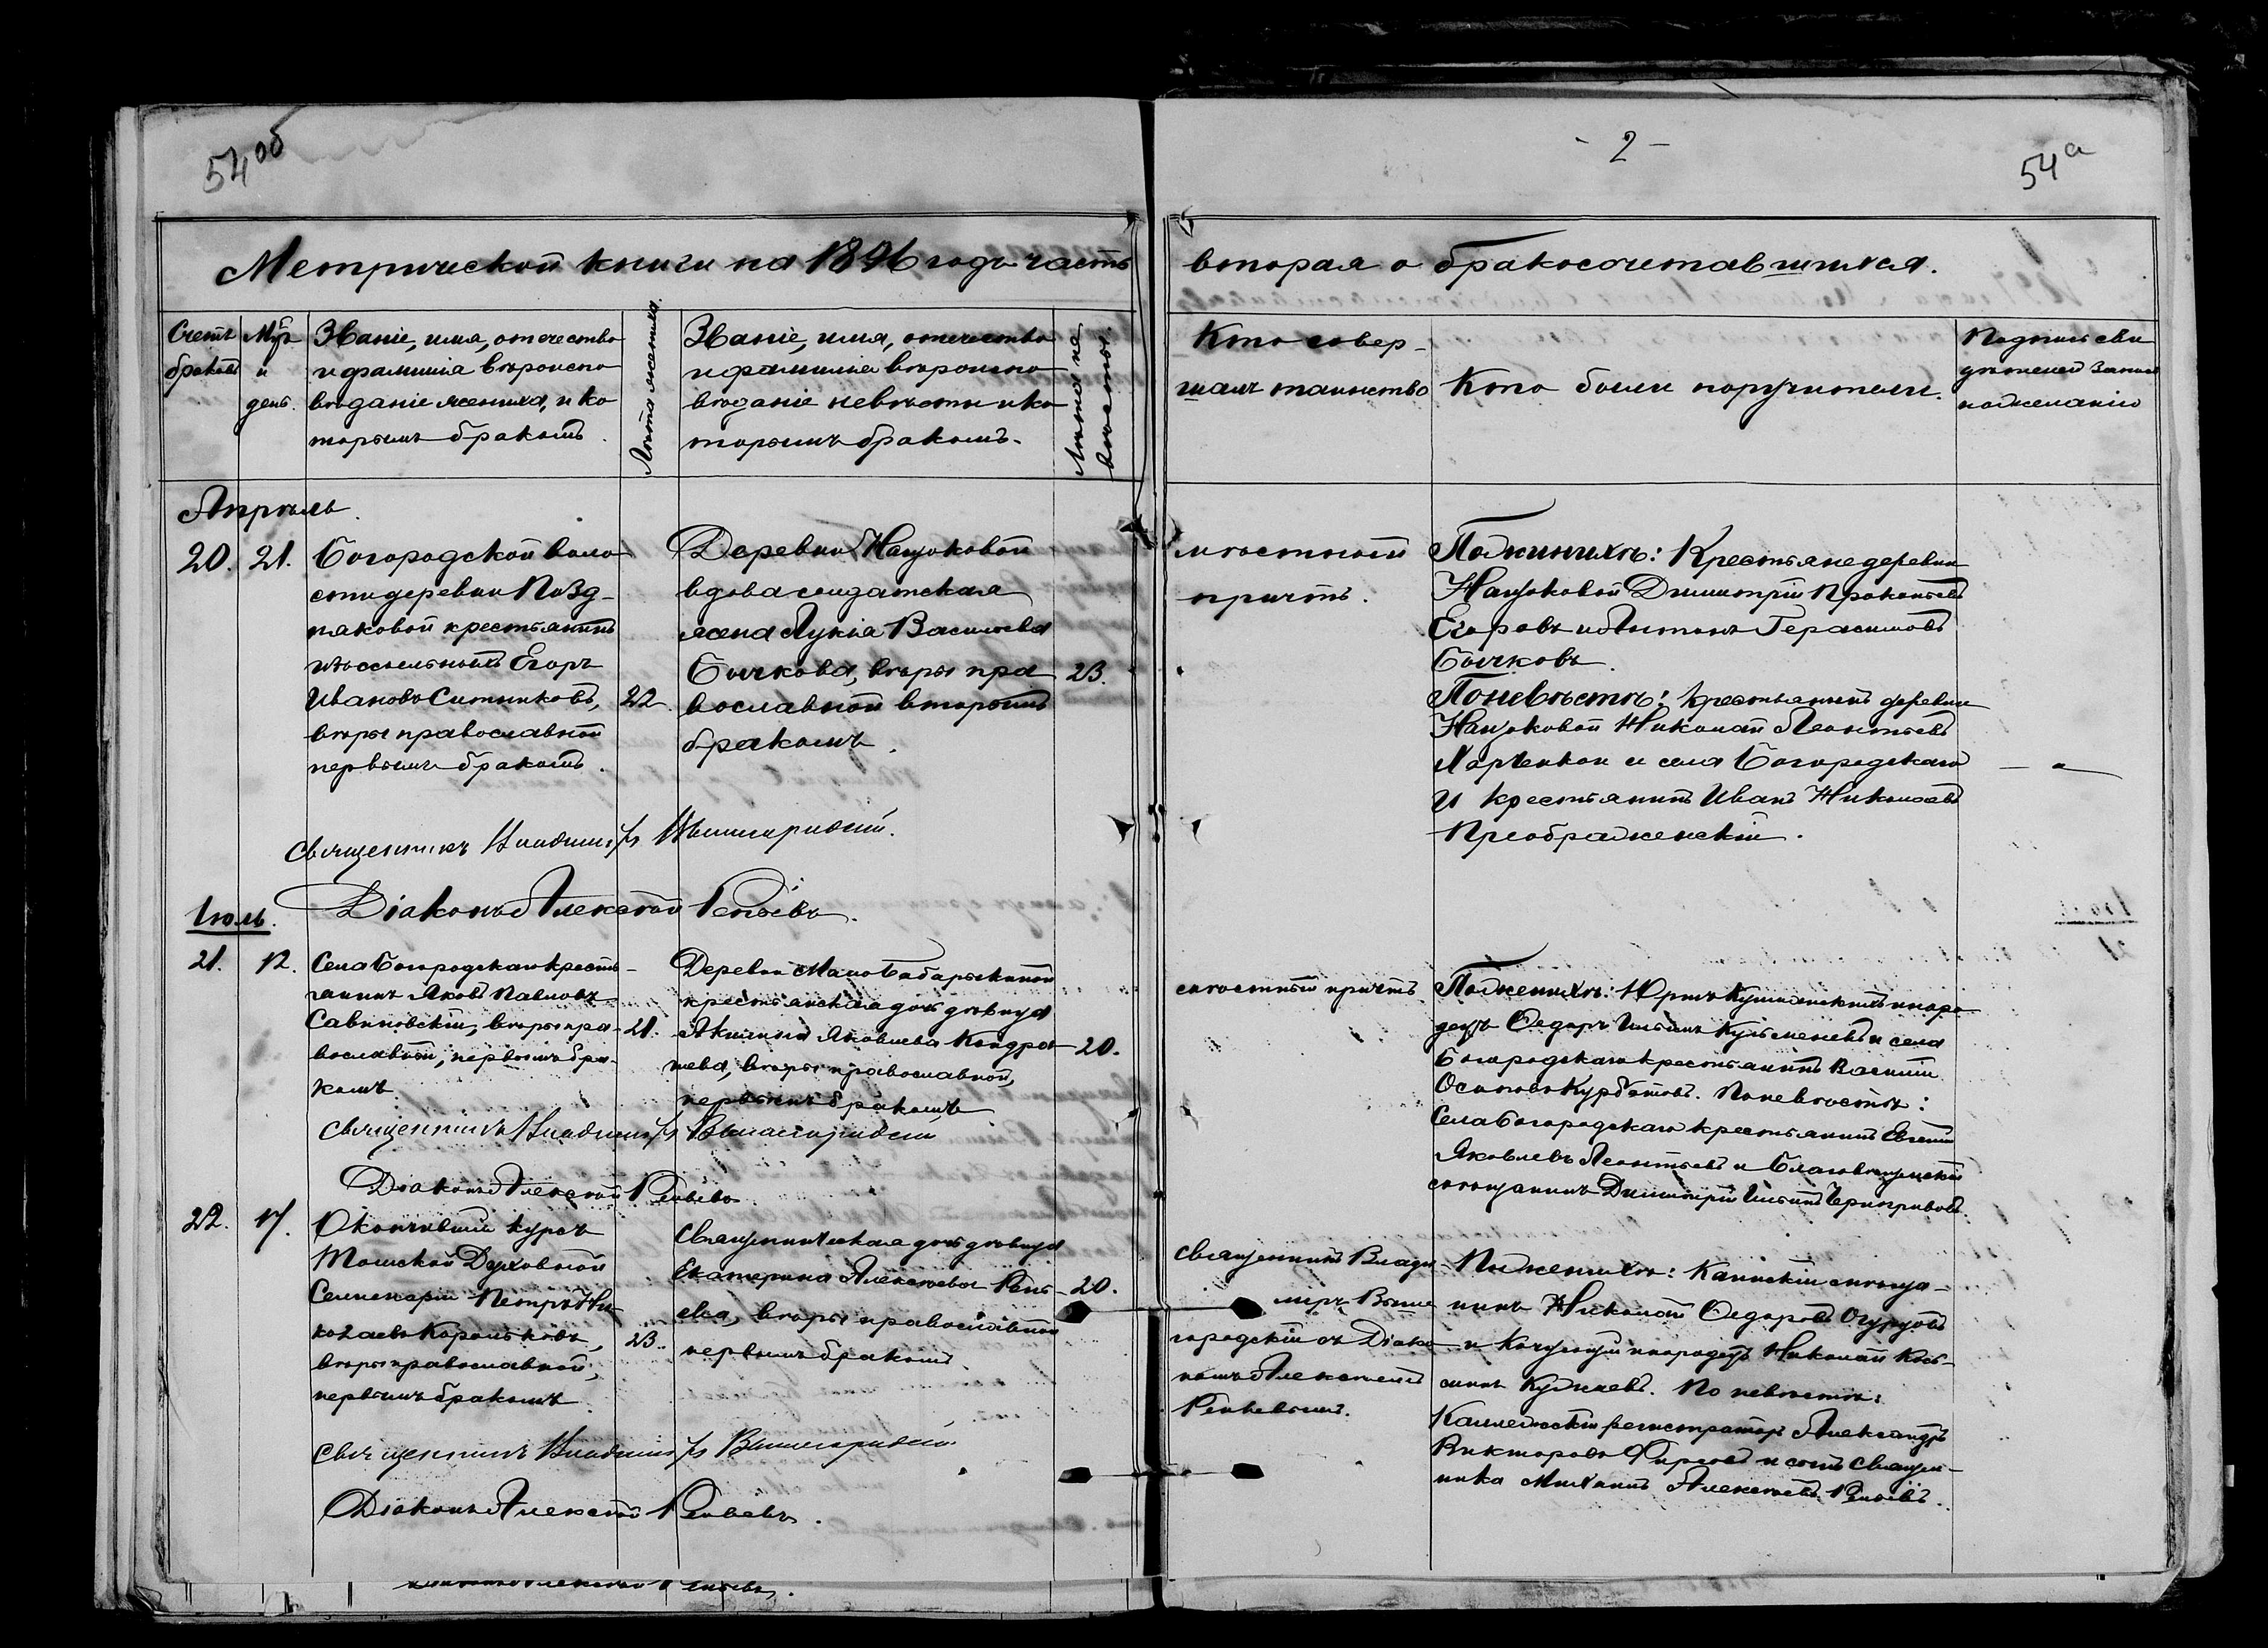 54 об
- 2 -
54 а
Метрической книги на 1896 годъ часть
вторая о бракосочетавшихся.
Счетъ
браковъ
Мѣс.
и
день.
Званіе, имя, отечество
и фамилія вѣроиспо
вѣданіе жениха, и ко
торымъ бракомъ.
Лѣта жениха.
Званіе, имя, отечество
и фамилія вѣроиспо
вѣданіе невѣсты и ко
торымъ бракомъ.
Лѣта не
вѣсты.
Кто совер-
шалъ таинство
Кто были поручители.
Подпись сви
дѣтелей записи
по желанію
Апрѣль.
20. 21.
Богородской воло
сти деревни Позд-
няковой крестьянинъ
изъ ссыльныхъ Егоръ
Ивановъ Ситниковъ,
вѣры православной
первымъ бракомъ.
22.
Деревни Нащоковой
вдова солдатская
жена Лукія Васильева
Бычкова, вѣры пра
вославной вторымъ
бракомъ.
23.
мѣстный
причтъ.
По женихѣ: Крестьяне деревни
Нащоковой Димитрій Прокопьевъ
Егоровъ и Антонъ Герасимовъ
Бычковъ.
По невѣстѣ: крестьянинъ деревни
Нащоковой Николай Леонтьевъ
и села Богородскаго
и крестьянинъ Иванъ Николаевъ
Преображенскій.
Священникъ Владиміръ Вышегородскій.
Діаконъ Алексѣй Репьевъ.
Іюль.
21. 12.
Села Богородскаго кресть-
янинъ Яковъ Павловъ
Савиновскій, вѣры пра-
вославной, первымъ бра-
комъ
21.
Деревни Мало Бабарыкиной
крестьянская дочь дѣвица
Акилина Яковлева Кондра
тьева, вѣры православной,
первымъ бракомъ
20.
мѣстный причтъ
По женихѣ: инаро
децъ Ѳедоръ Ильинъ и села
Богородскаго крестьянинъ Василій
Осиповъ Курбатовъ. По невѣстѣ:
Села Богородскаго крестьянинъ Евгеній
Яковлевъ Леонтьевъ и Благовѣщенскій
мѣщанинъ Димитрій Ильинъ
Священникъ Владиміръ Вышегородскій
Діаконъ Алексѣй Репьевъ
22. 17.
Окончившій курсъ
Томской Духовной
Семинаріи Петръ Ни
колаевъ Корольковъ,
вѣры православной,
первымъ бракомъ
23.
Священническая дочь дѣвица
Екатерина Алексѣева Репь-
ева, вѣры православной
первымъ бракомъ
20.
Священникъ Влади
міръ Выше
городскій съ Діако
номъ Алексѣемъ
Репьевымъ.
По женихѣ: Каинскій мѣща-
нинъ Николай Ѳедоровъ Огурцовъ
и Кочующій инородецъ Николай Козь-
минъ Кулжаевъ. По невѣстѣ:
Коллежскій регистраторъ Александръ
Викторовъ Фирсовъ и сынъ Священ-
ника Михаилъ Алексѣевъ Репьевъ.
Священникъ Владиміръ Вышегородскій
Діаконъ Алексѣй Репьевъ.